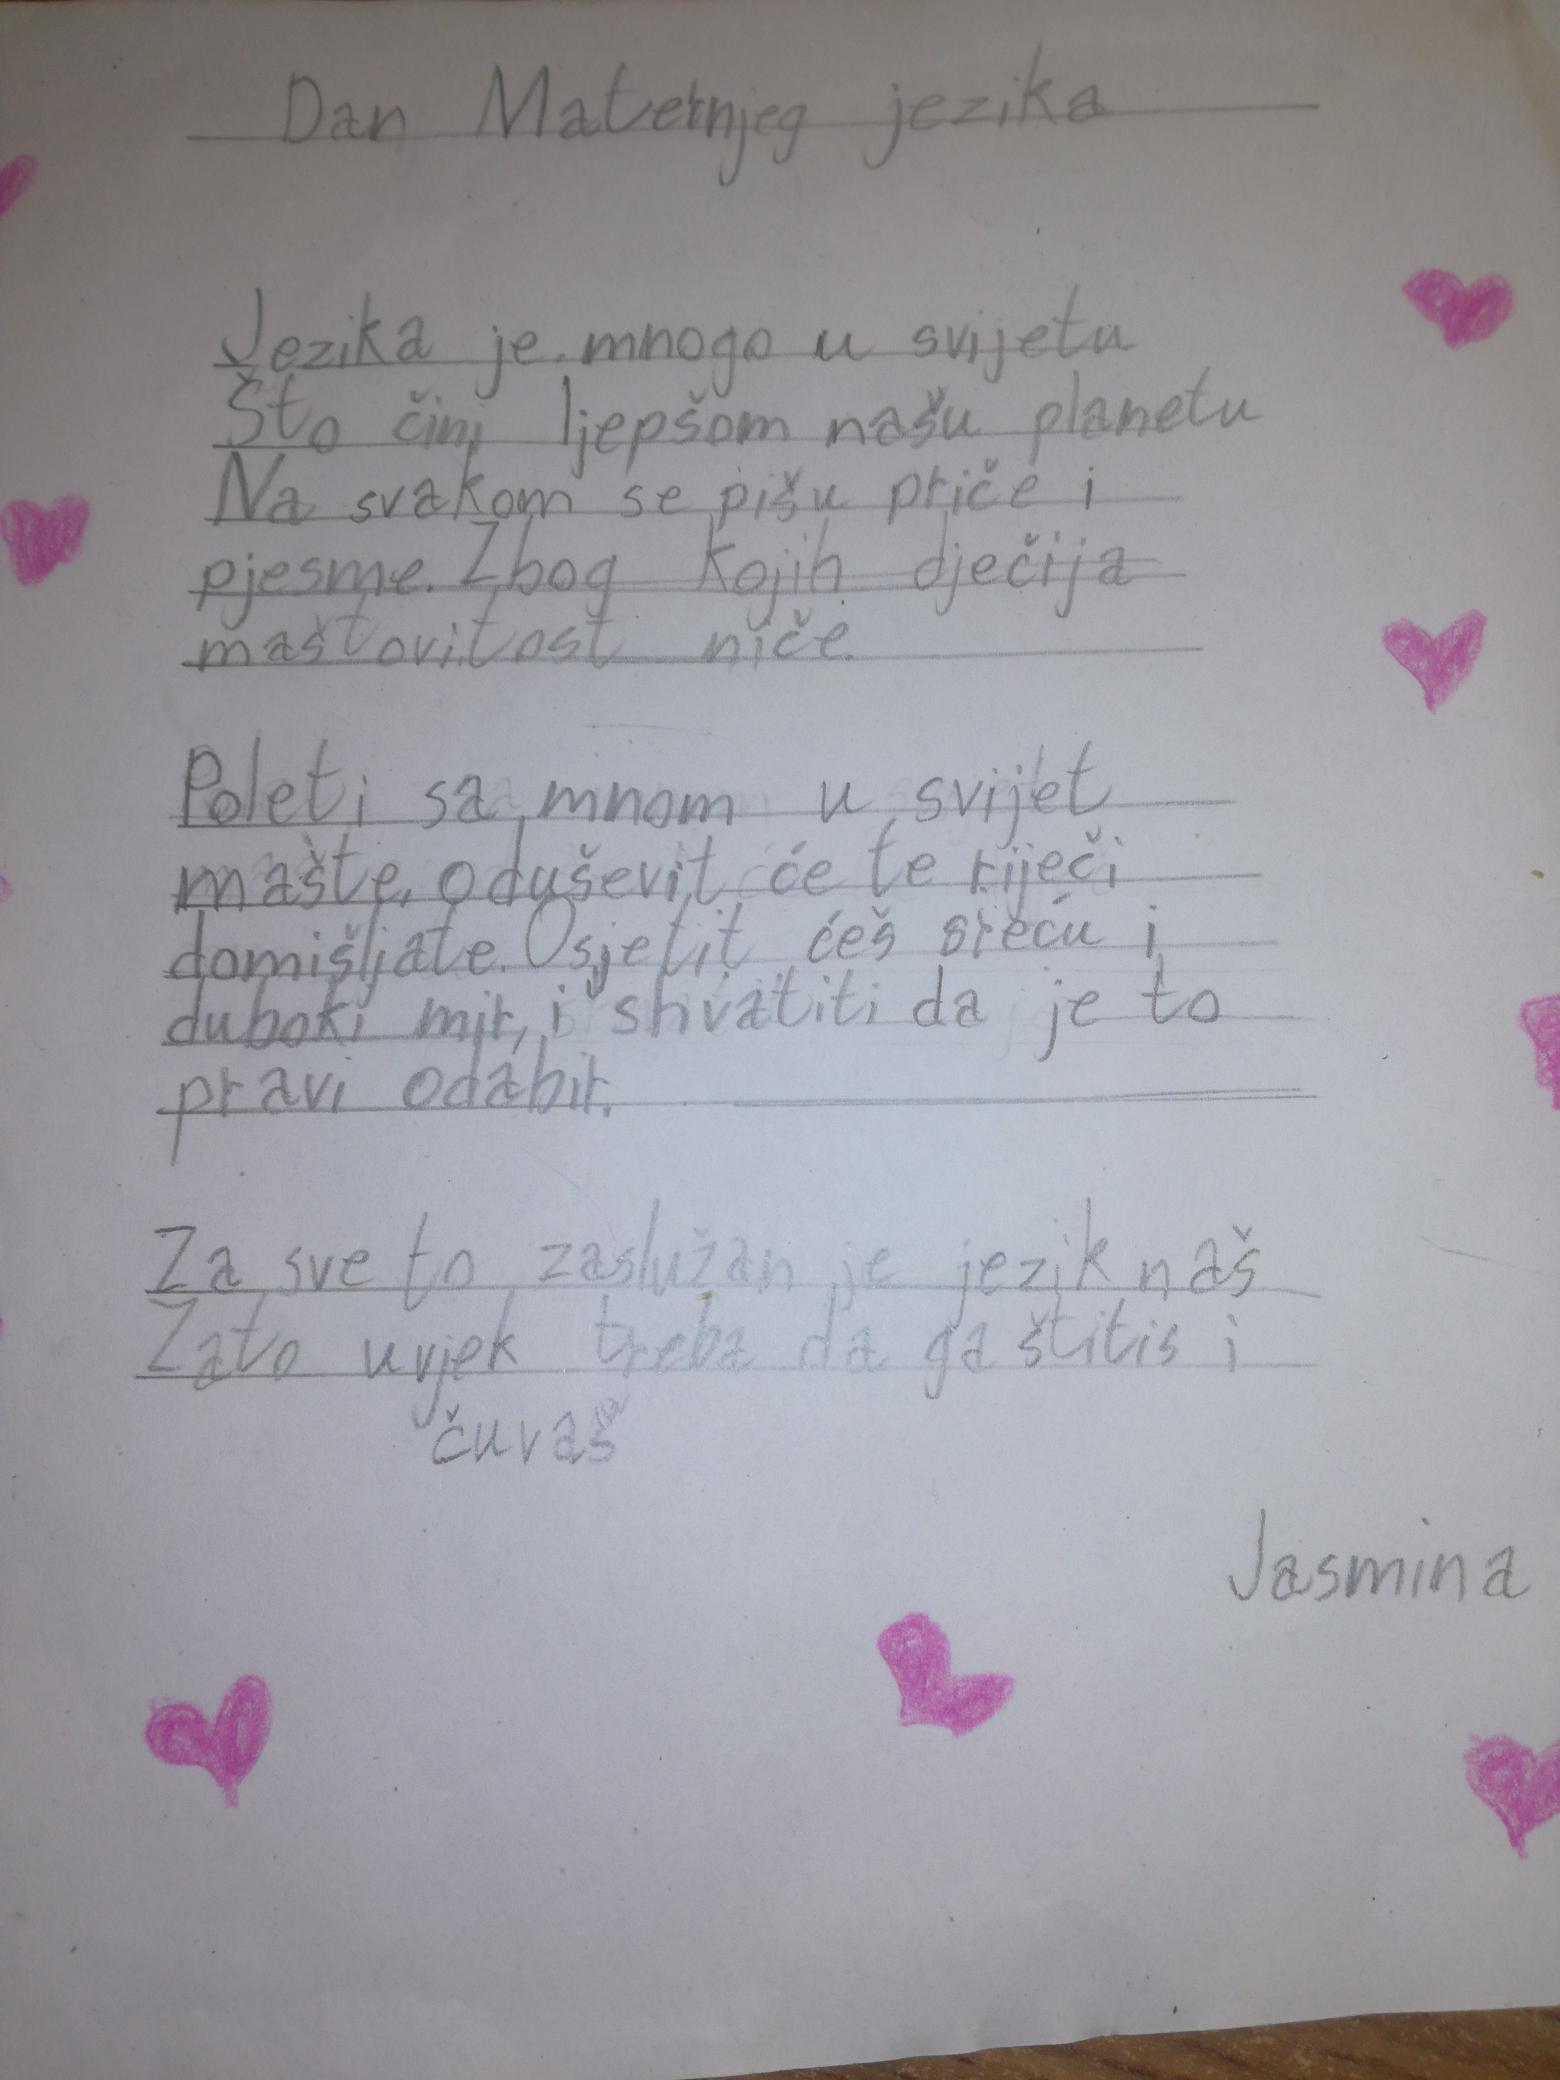 Dan Maternjeg jezika
Jezika je mnogo u svijetu
Što čini ljepšom našu planetu
Na svakom se pišu priče i
pjesme. Zbog kojih dječija
maštovitost niče.
Poleti sa mnom u svijet
mašte, oduševit će te riječi
domišljate. Osjetit ćeš sreću i
duboki mir, i shvatiti da je to
pravi odabir.
Za sve to zaslužan je jezik naš
Zato uvjek treba da ga štitis i
čuvaš
Jasmina